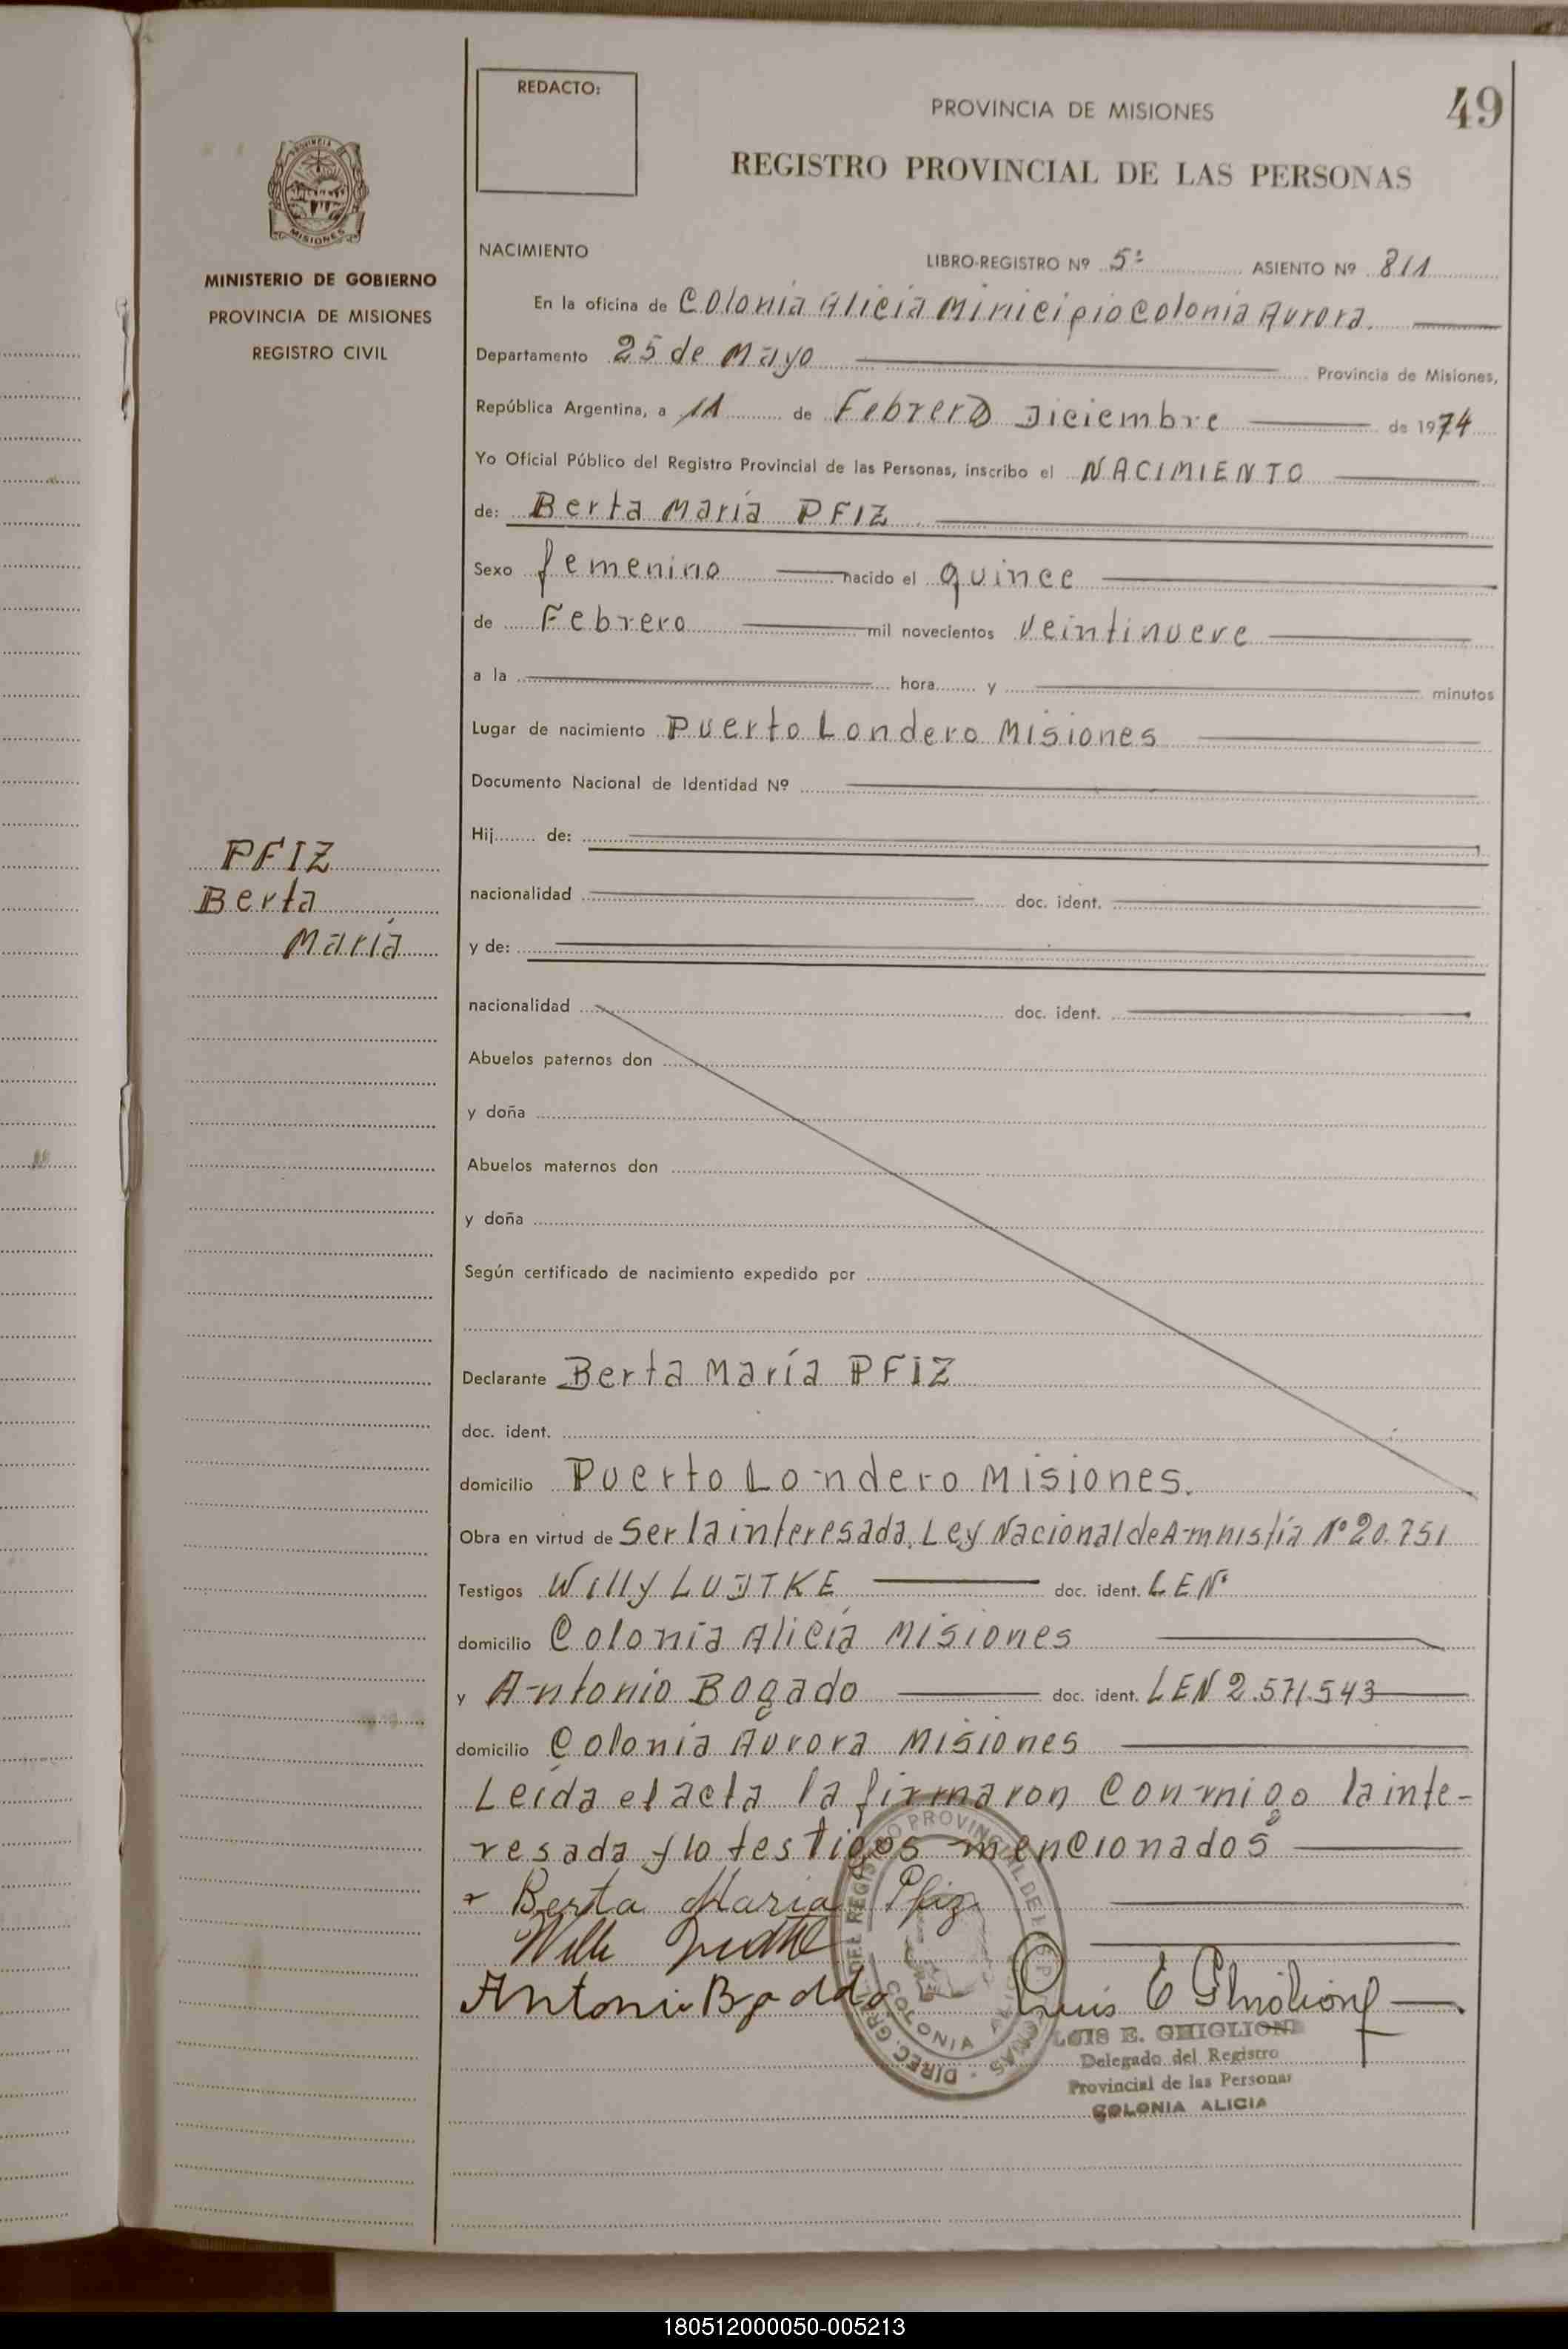 REDACTO:
PROVINCIA DE MISIONES
49
REGISTRO PROVINCIAL DE LAS PERSONAS
PROVINCIA DE
MISIONES
MINISTERIO DE GOBIERNO
PROVINCIA DE MISIONES
REGISTRO CIVIL
NACIMIENTO
LIBRO-REGISTRO Nº 5º ASIENTO Nº 811
En la oficina de Colonia Alicia Minicipio Colonia Aurora.
Departamento 25 de Mayo Provincia de Misiones,
República Argentina, a 11 de Febrero Diciembre de 1974
Yo Oficial Público del Registro Provincial de las Personas, inscribo el NACIMIENTO
de: Berta María PFIZ
Sexo femenino nacido el quince
de Febrero mil novecientos veintinueve
a la hora y minutos
Lugar de nacimiento Puerto Londero Misiones
Documento Nacional de Identidad Nº
Hij de:
PFIZ
Berta
María
nacionalidad doc. ident.
y de:
nacionalidad doc. ident.
Abuelos paternos don
y doña
Abuelos maternos don
y doña
Según certificado de nacimiento expedido por
Declarante Berta María PFIZ
doc. ident.
domicilio Puerto Londero Misiones.
Obra en virtud de Ser la interesada, Ley Nacional de Amnistía Nº 20.751
Testigos Willy LUDTKE doc. ident. LENº
domicilio Colonia Alicia Misiones
y Antonio Bogado doc. ident. LEN 2.571.543
domicilio Colonia Aurora Misiones
Leída el acta la firmaron Conmigo la inte-
resada y lo testigos mencionados
Berta Maria Pfiz
Antonio Bogado
Luis E Ghiglione
LUIS E. GHIGLIONE
Delegado del Registro
Provincial de las Personas
COLONIA ALICIA
180512000050-005213